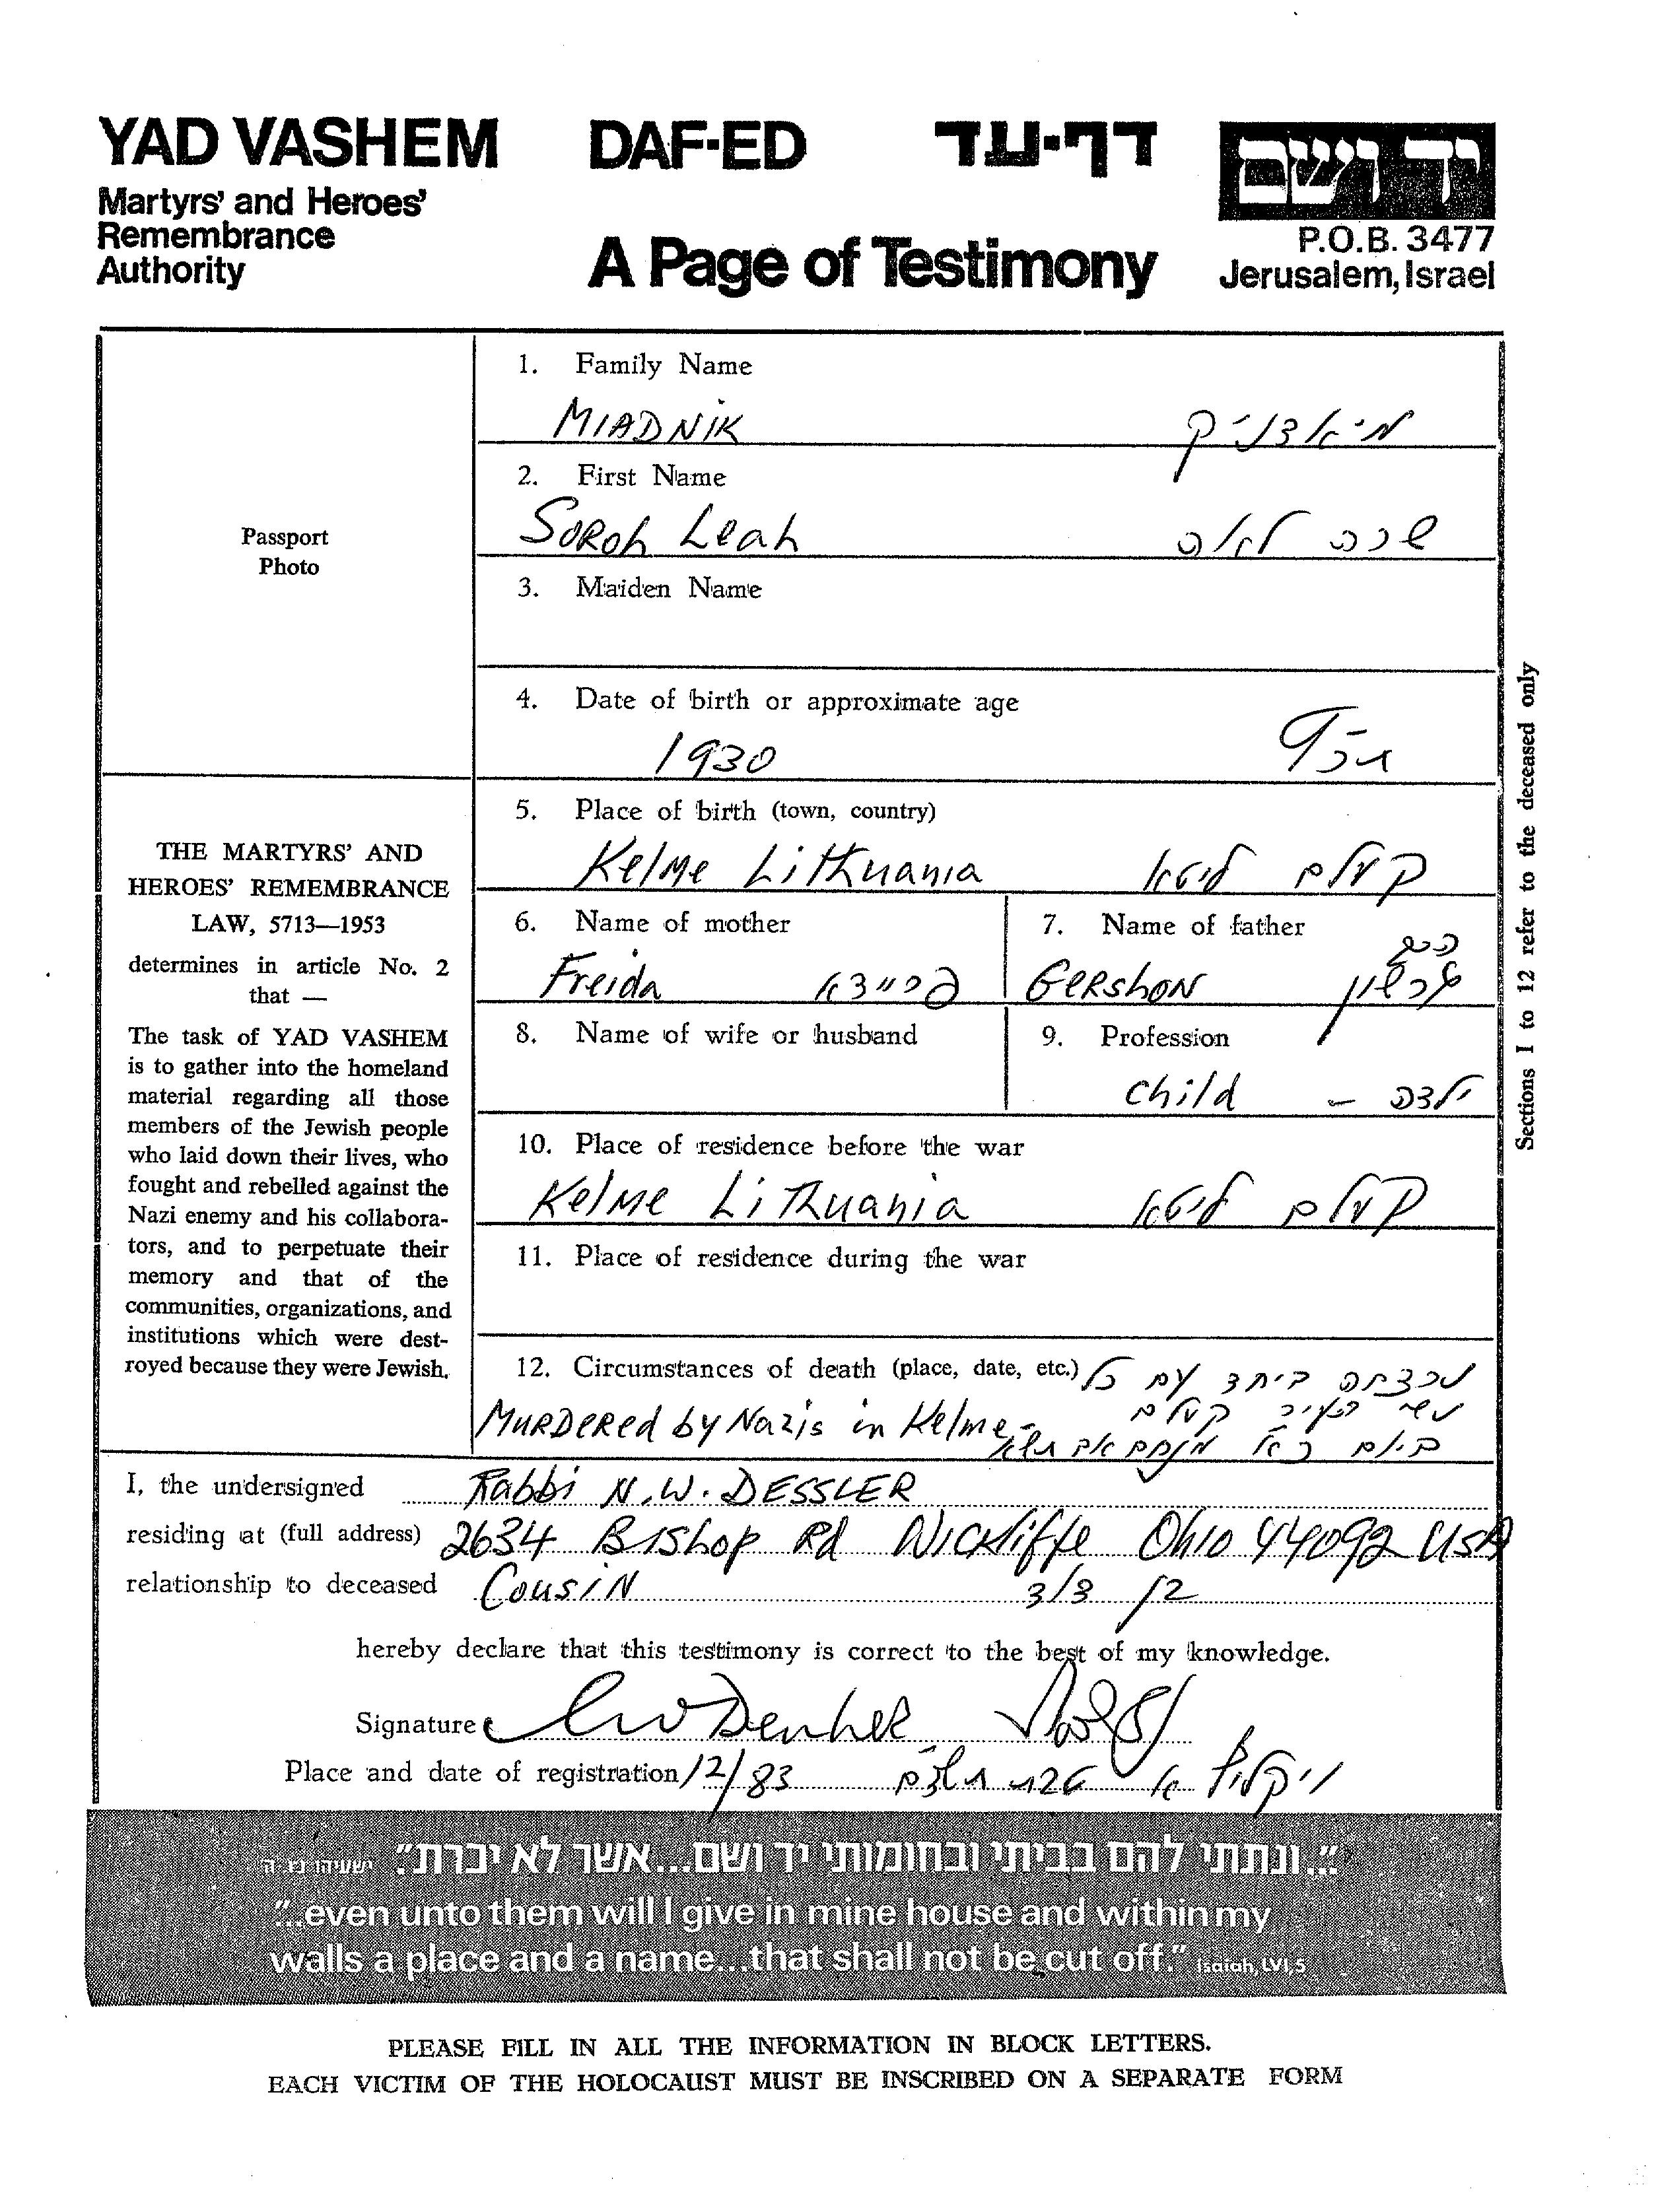 YAD VASHEM DAF-ED דף-עד ידושם
Martyrs' and Heroes'
Remembrance
Authority
A Page of Testimony
P.O.B. 3477
Jerusalem, Israel
Passport
Photo
THE MARTYRS' AND
HEROES' REMEMBRANCE
LAW, 5713—1953
determines in article No. 2
that —
The task of YAD VASHEM
is to gather into the homeland
material regarding all those
members of the Jewish people
who laid down their lives, who
fought and rebelled against the
Nazi enemy and his collabora-
tors, and to perpetuate their
memory and that of the
communities, organizations, and
institutions which were dest-
royed because they were Jewish.
1. Family Name
MIADNIK מיאדניק
2. First Name
SOROH Leah שרה לאה
3. Maiden Name
4. Date of birth or approximate age
1930 תרץ
5. Place of birth (town, country)
Kelme Lithuania קעלם ליטא
6. Name of mother
Freida פריידא
7. Name of father
GERSHON הרב גרשון
8. Name of wife or husband
9. Profession
child — ילדה
10. Place of residence before the war
Kelme Lithuania קעלם ליטא
11. Place of residence during the war
12. Circumstances of death (place, date, etc.) נרצחה ביחד עם כל
MURDERED by Nazis in Kelme - העיר קעלם
ביום מנחם אב תש״א
Sections 1 to 12 refer to the deceased only
I, the undersigned Rabbi N.W. DESSLER
residing at (full address) 2634 BIShop Rd WICKliffe Ohio 44092 USA
relationship to deceased COUSIN בן דוד
hereby declare that this testimony is correct to the best of my knowledge.
Signature
Place and date of registration 12/83 וויקליף א טבת תשדם
"...ונתתי להם בביתי ובחומותי יד ושם...אשר לא יכרת". ישעיהו נו׳ ה
"...even unto them will I give in mine house and within my
walls a place and a name...that shall not be cut off." Isaiah, LVI,5
PLEASE FILL IN ALL THE INFORMATION IN BLOCK LETTERS.
EACH VICTIM OF THE HOLOCAUST MUST BE INSCRIBED ON A SEPARATE FORM